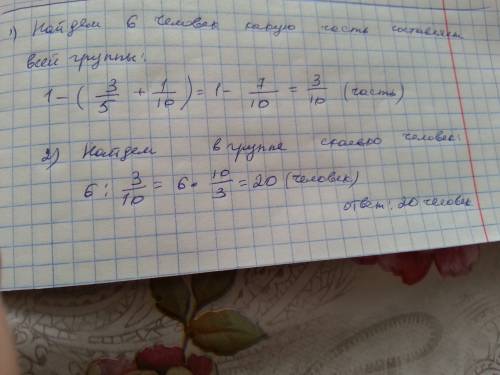 1) Найдем 6 человек какую часть составляет
всей группы:
1 - ( 3/5 + 1/10 ) = 1 - 7/10 = 3/10 (часть)
2) Найдем в группе сколько человек:
6 : 3/10 = 6 · 10/3 = 20 (человек)
ответ: 20 человек